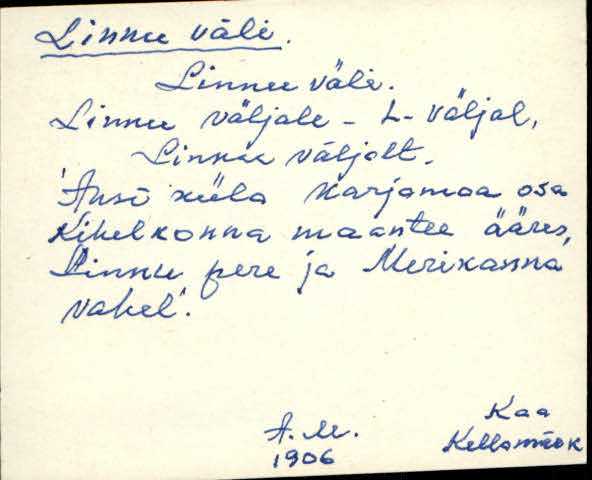 Linnu väli.
Linnu väli.
Linnu väljale - L- väljal,
Linnu väljalt.
'Ansi küla karjamaa osa
Kihelkonna maantee ääres,
Linnu pere ja Merikanna
vahel'.
A. M. Kaa
1906 Kellamäe k